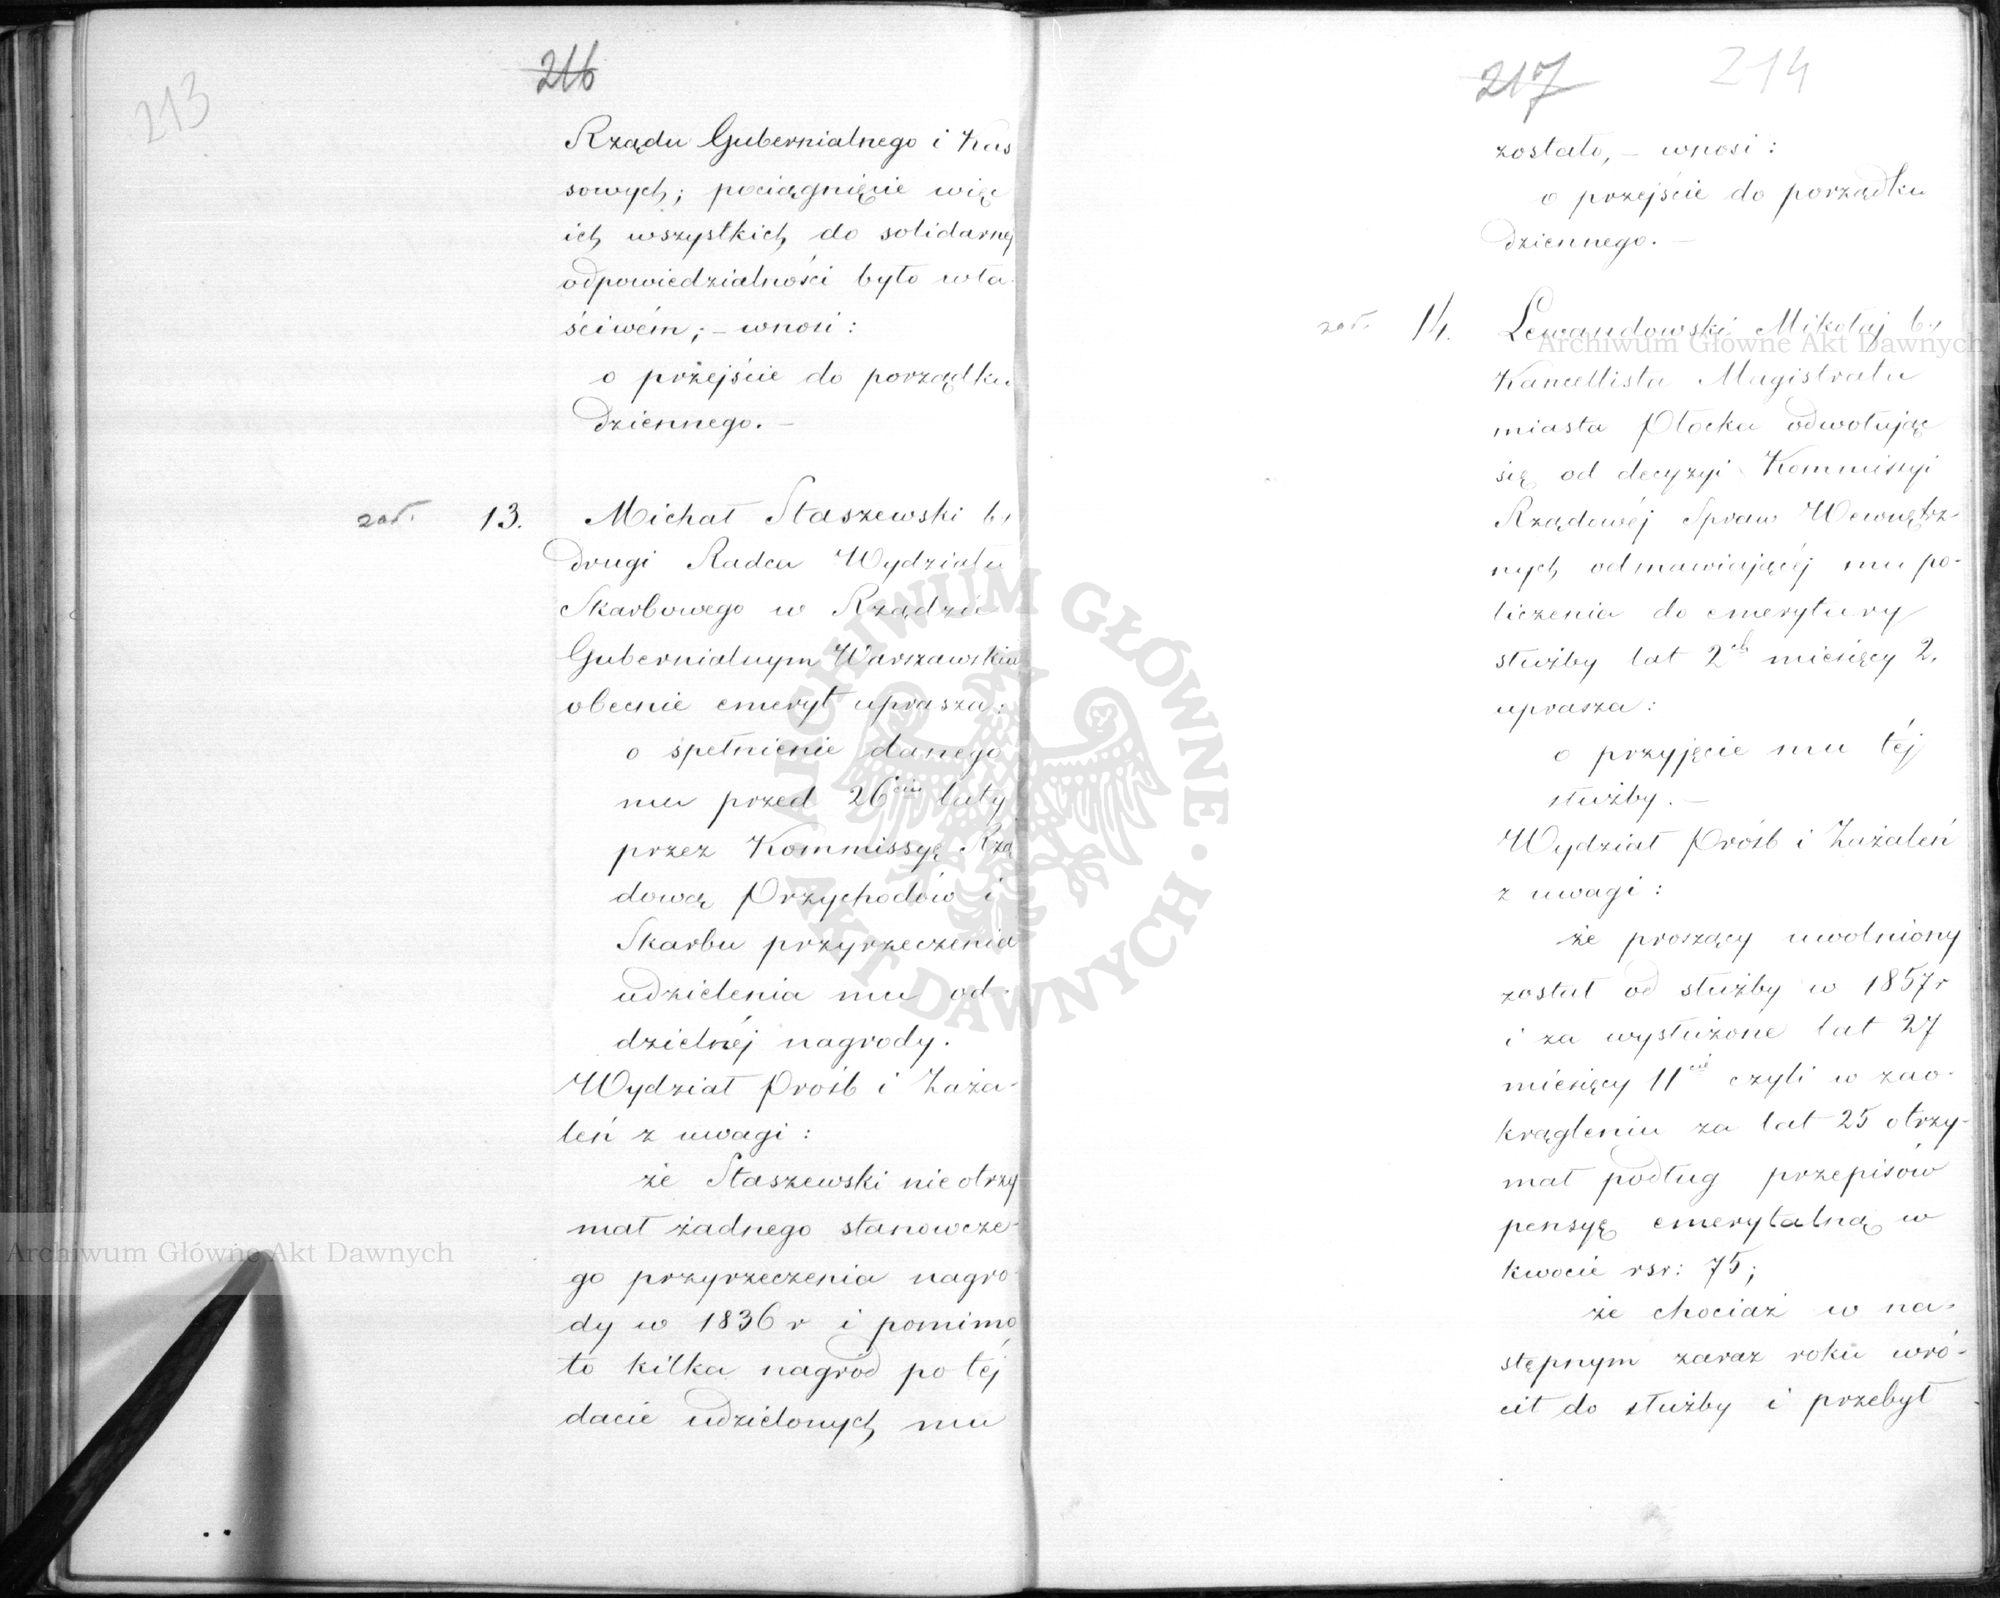 213
216
Rządu Gubernialnego i Kas
sowych; pociągnięcie więc
ich wszystkich do solidarnej
odpowiedzialności było wła-
ściwém; – wnosi:
o przejście do porządku
dziennego. –
zał. 13. Michał Staszewski b.
drugi Radca Wydziału
Skarbowego w Rządzie
Gubernialnym Warszawskim
obecnie emeryt uprasza:
o spełnienie danego
mu przed 26ciu laty
przez Kommissyę Rzą
dową Przychodów i
Skarbu przyrzeczenia
udzielenia mu od-
dzielnéj nagrody.
Wydział Próśb i Zaża-
leń z uwagi:
że Staszewski nie otrzy
mał żadnego stanowcze-
go przyrzeczenia nagro
dy w 1836 r i pomimo
to kilka nagród po téj
dacie udzielonych mu
217 214
zostało, – wnosi:
o przejście do porządku
dziennego. –
zał. 14. Lewandowski Mikołaj b.
Kancellista Magistratu
miasta Płocka odwołując
się od decyzyi Kommissyi
Rządowéj Spraw Wewnętrz-
nych odmawiającéj mu po-
liczenia do emerytury
służby lat 2ch miesięcy 2.
uprasza:
o przyjęcie mu téj
służby. –
Wydział Próśb i Zażaleń
z uwagi:
że proszący uwolniony
został od służby w 1857 r
i za wysłużone lat 27
miesięcy 11cie czyli w zao-
krągleniu za lat 25 otrzy-
mał podług przepisów
pensyę emerytalną w
kwocie rsr: 75;
że chociaż w na-
stępnym zaraz roku wró-
cił do służby i przebył
Archiwum Główne Akt Dawnych
Archiwum Główne Akt Dawnych
ARCHIWUM GŁÓWNE · AKT DAWNYCH ·